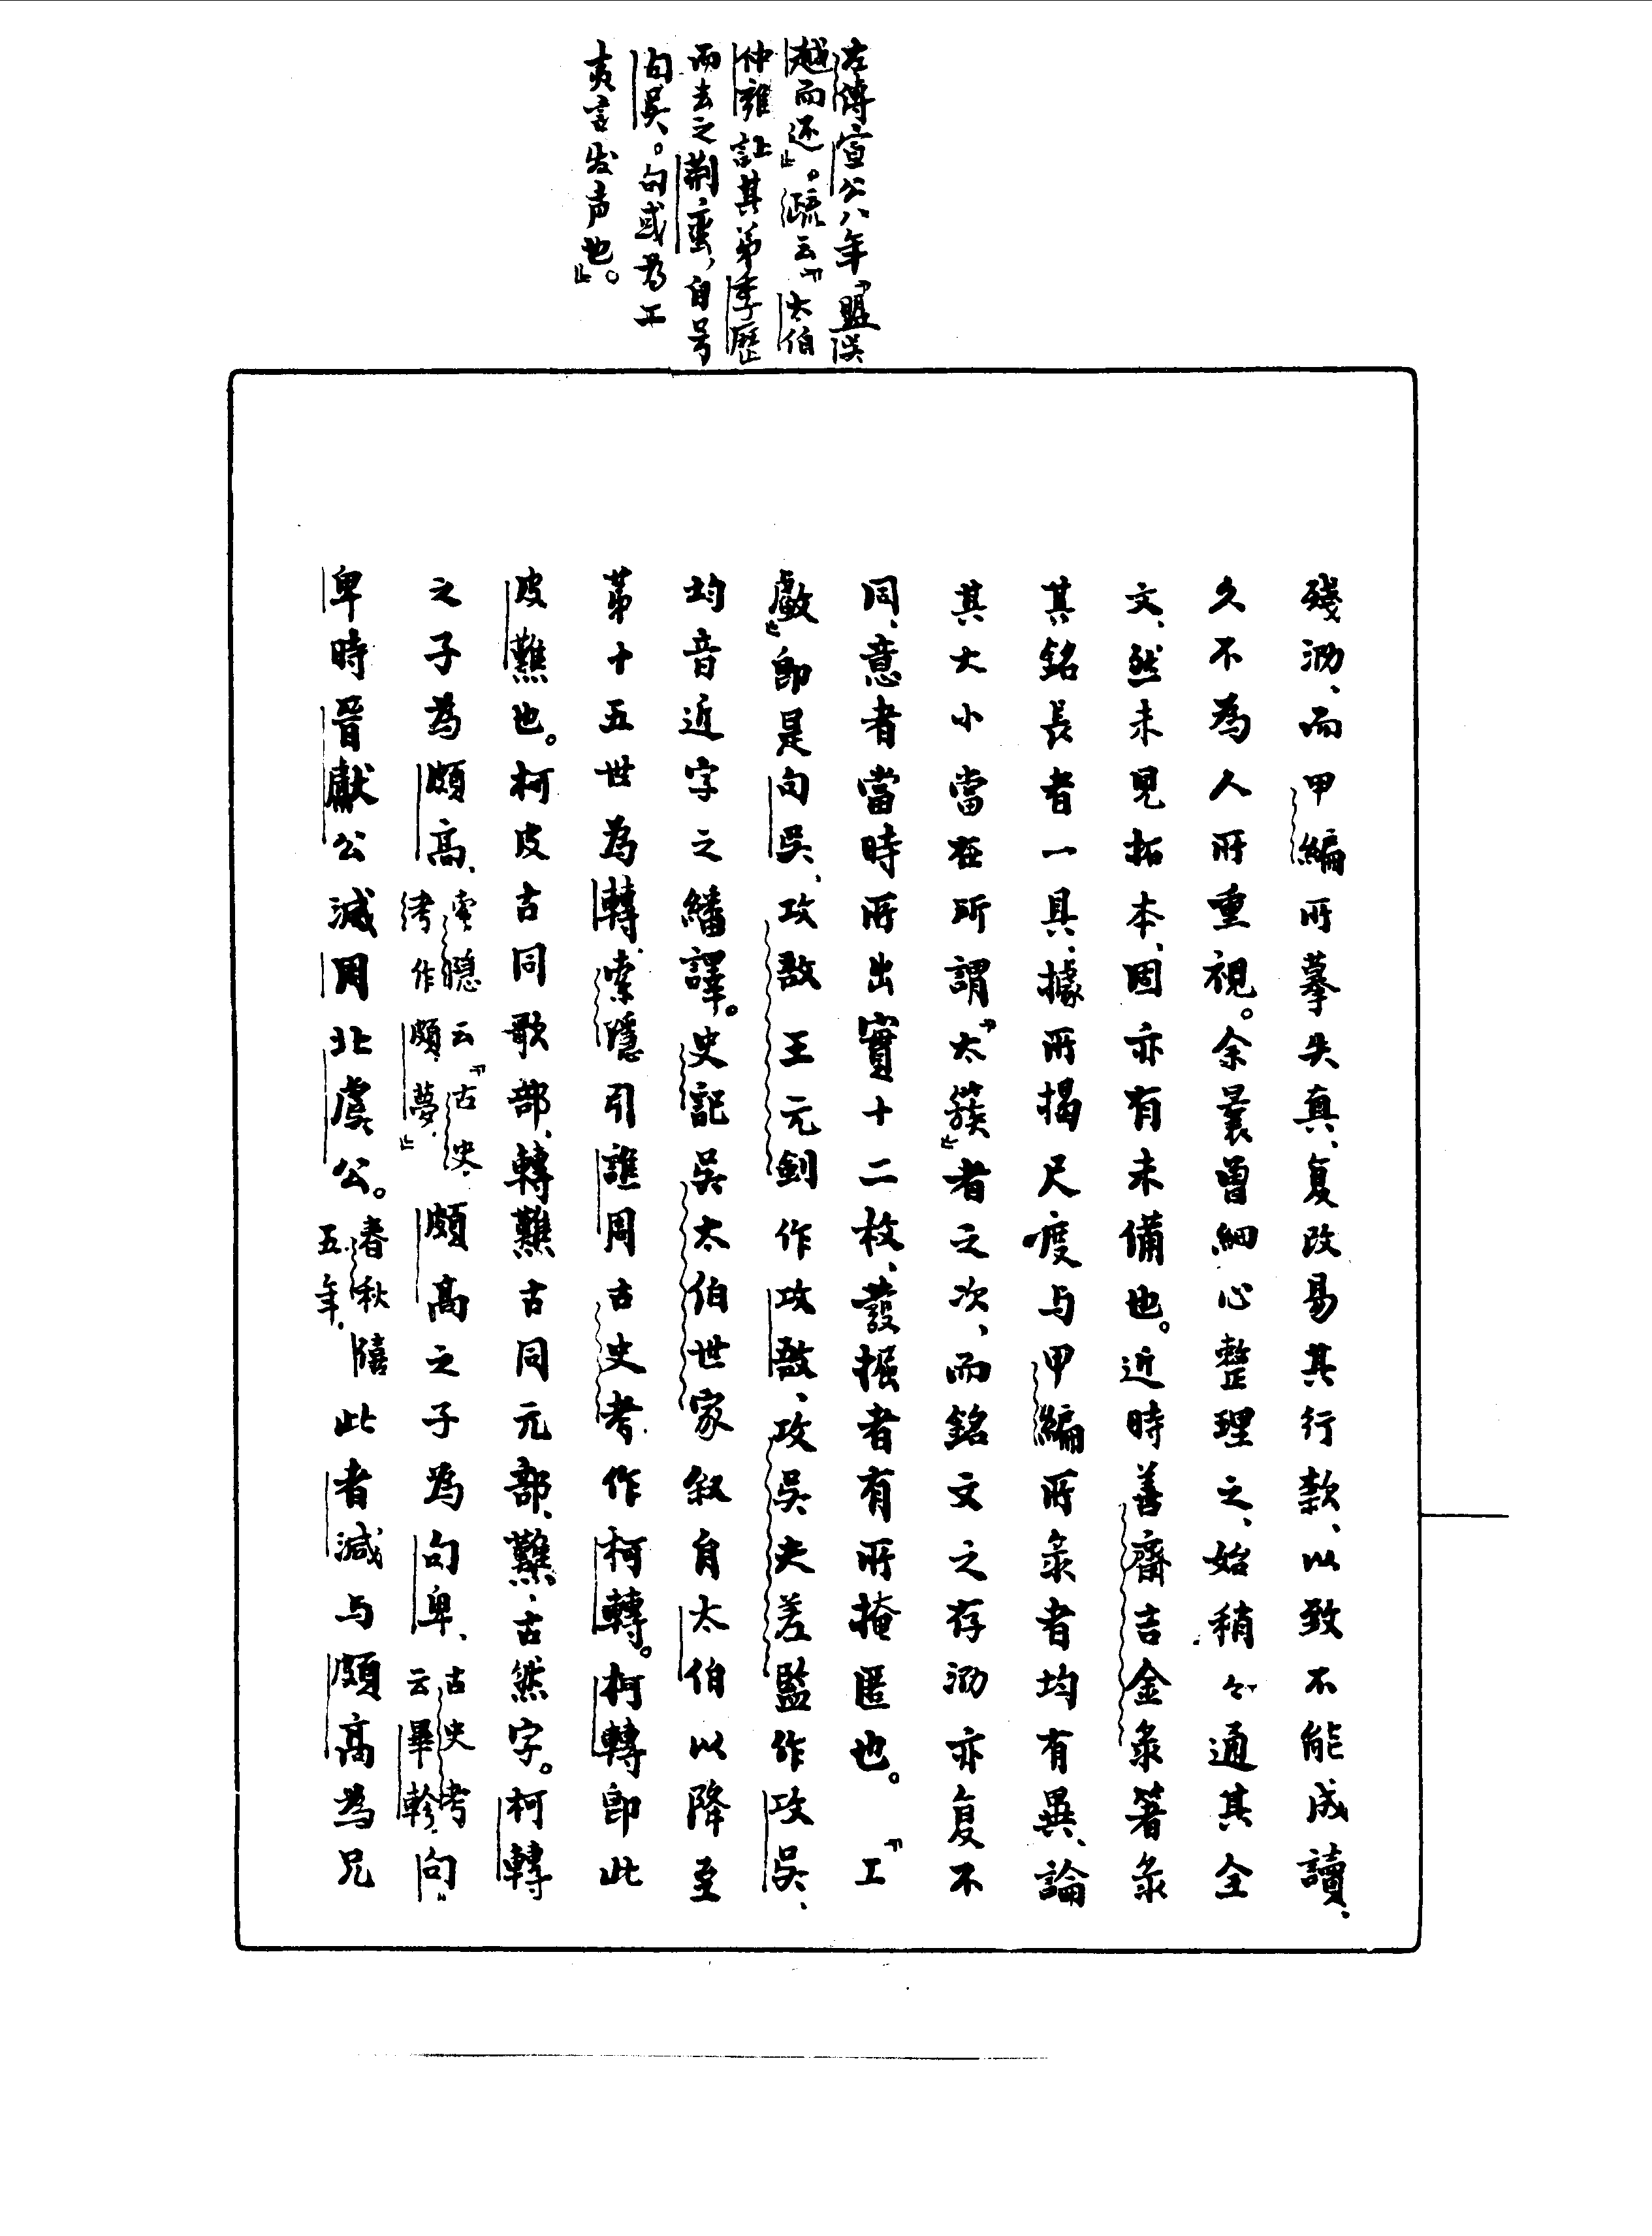 左傳宣公八年，「盟吳
越而还」。疏云「太伯
仲雍让其弟季歷
而去之荆蛮，自号
句吳。句或为工
夷言发声也。」
殘泐、而甲編所摹失真、复改易其行款、以致不能成讀、
久不為人所重視。余曩曾細心整理之、始稍々通其全
文、然未見拓本、固亦有未備也。近時善齋吉金彔箸彔
其銘長者一具、據所揭尺度与甲編所彔者均有異、論
其大小當在所謂「太簇」者之次、而銘文之存泐亦复不
同、意者當時所出實十二枚、發掘者有所掩匿也。「工
𢾅」卽是句吳、攻敔王元劍作攻敔、攻吳夫差監作攻吳、
均音近字之繙譯。史記吳太伯世家叙自太伯以降至
第十五世為轉、索隱引譙周古史考作柯轉。柯轉卽此
皮難也。柯皮古同歌部、轉難古同元部、難、古然字。柯轉
之子為頗高、索隱云「古史考作頗夢」頗高之子為句卑、古史考云畢軫句
卑時晉獻公滅周北虞公。春秋僖五年、此者減与頗高為兄